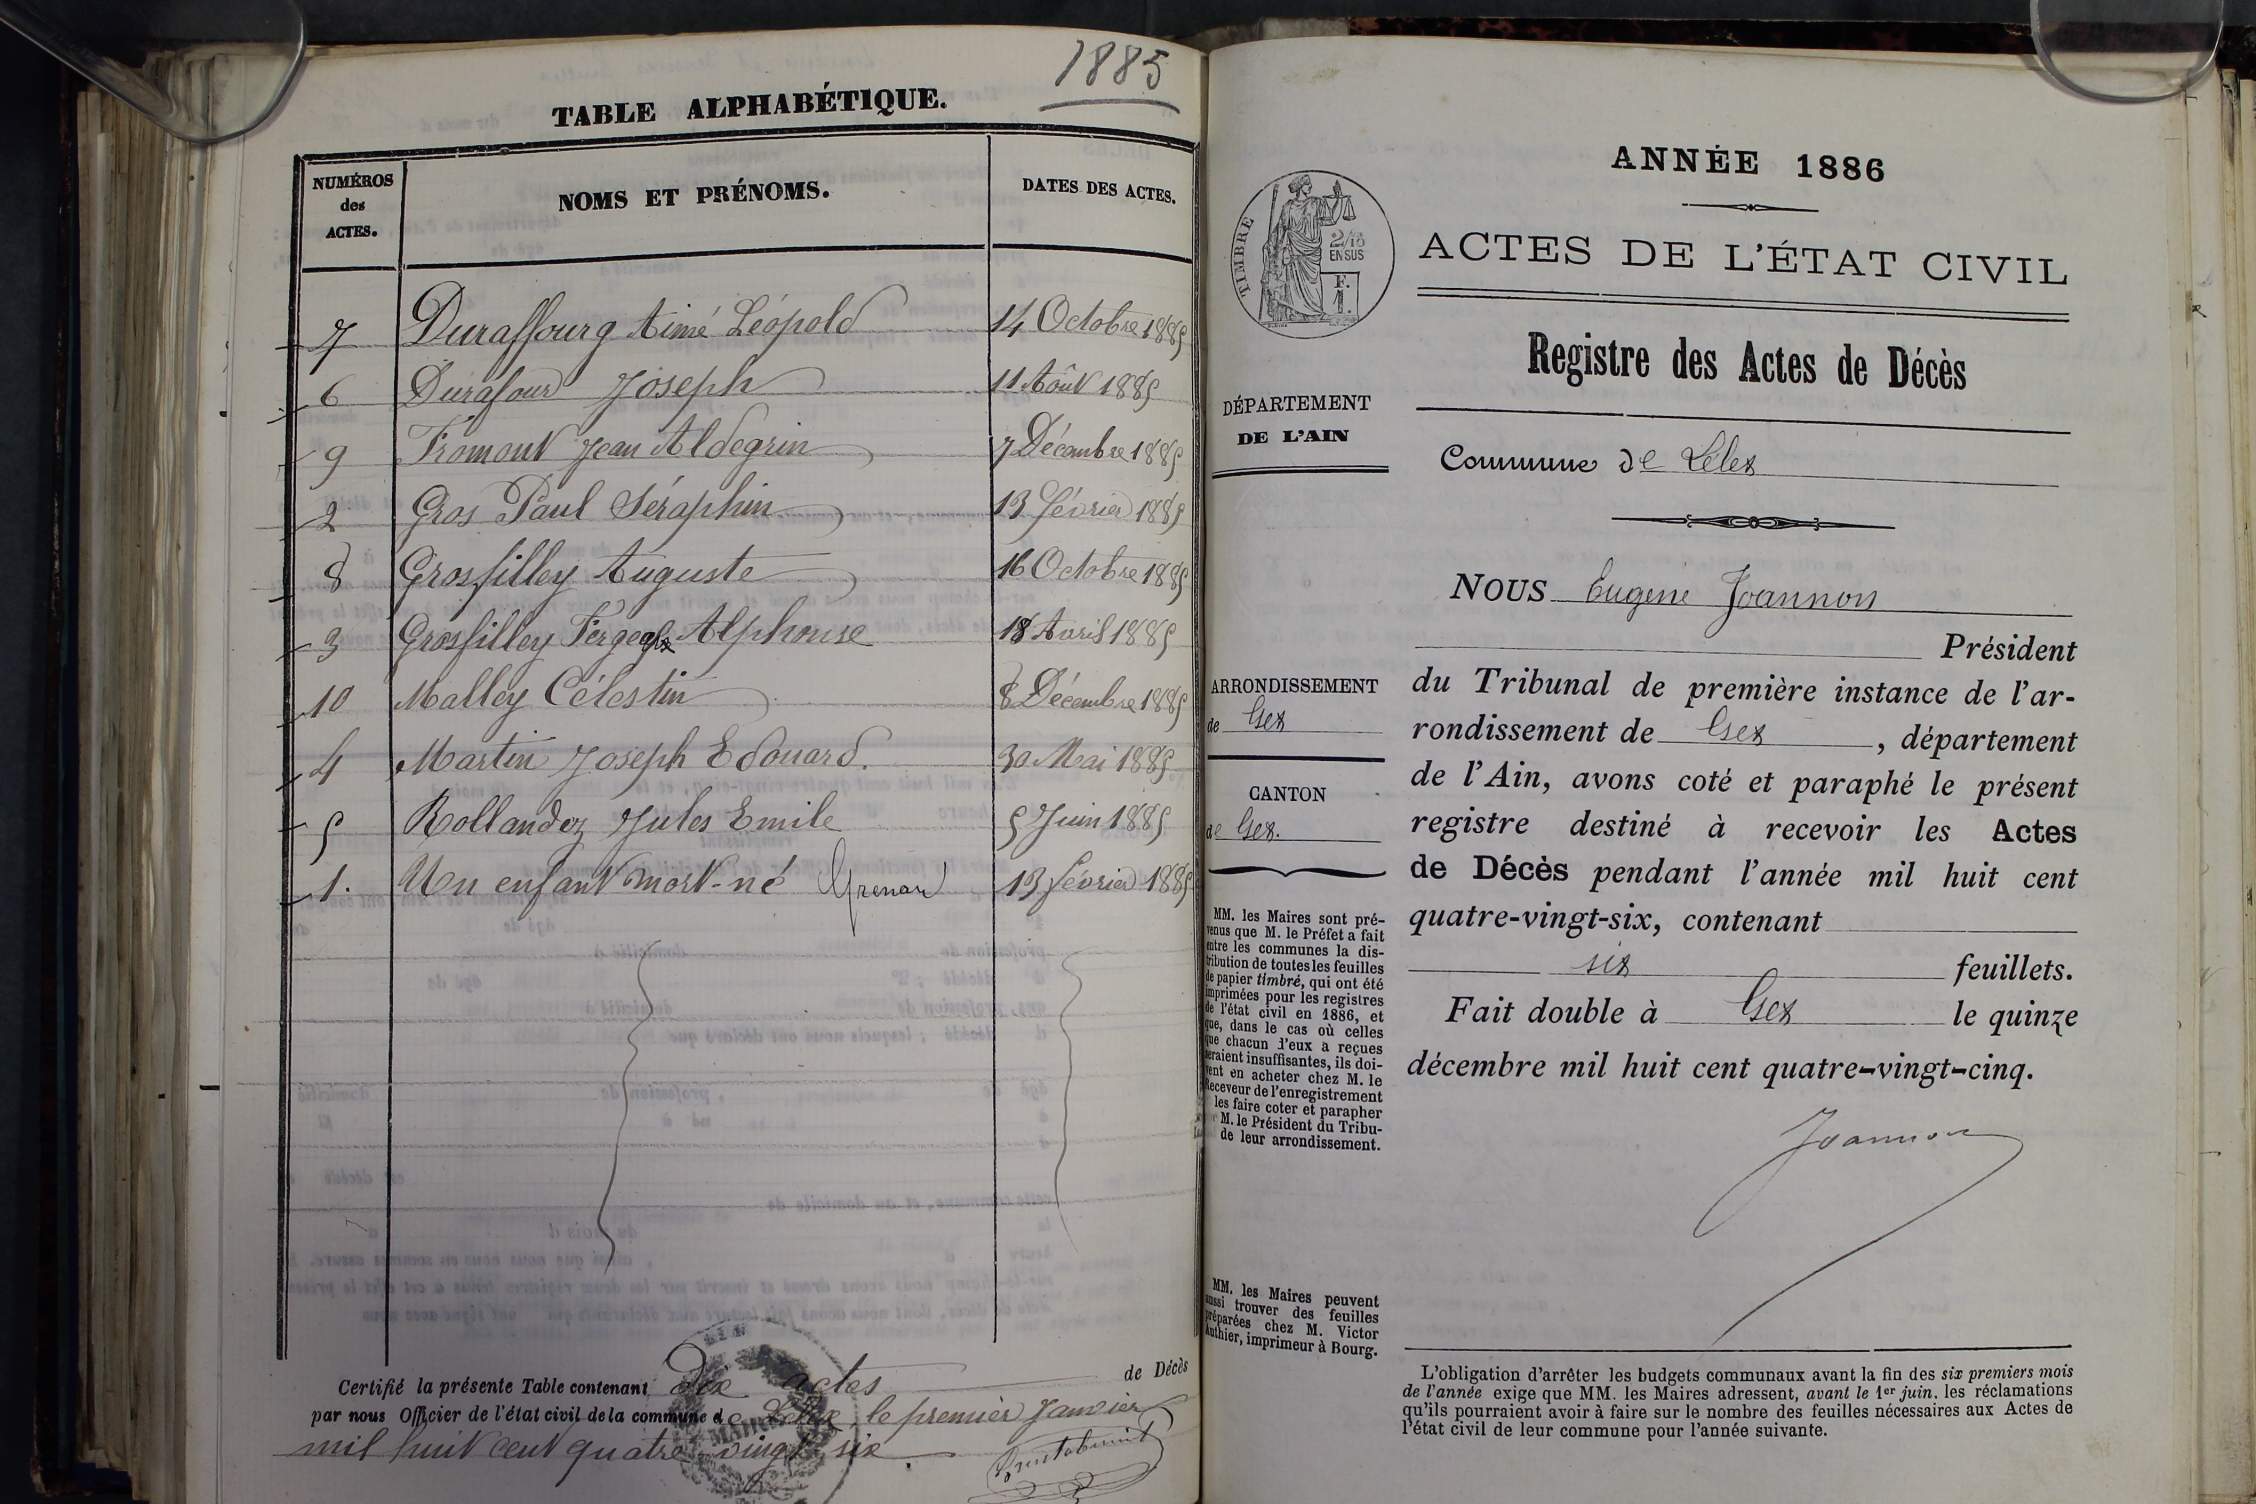 1885
TABLE ALPHABÉTIQUE.
NUMÉROS des ACTES. NOMS ET PRÉNOMS. DATES DES ACTES.
7 Duraffourg Aimé Léopold 14 Octobre 1885
6 Durafour Joseph 11 Août 1885
9 Fromont Jean Aldegrin 7 Décembre 1885
2 Gros Paul Séraphin 13 février 1885
8 Grosfilley Auguste 16 Octobre 1885
3 Grosfilley Alphonse 18 Avril 1885
10 Malley Célestin 8 Décembre 1885
4 Martin Joseph Edouard. 30 Mai 1885
5 Rollandez Jules Emile 5 Juin 1885
1. Un enfant mort-né Grenard 13 février 1885
Certifié la présente Table contenant dix actes de Décès
par nous Officier de l'état civil de la commune de Lélex, le premier Janvier
mil huit cent quatre vingt six
MAIRIE
ANNÉE 1886
ACTES DE L'ÉTAT CIVIL
TIMBRE
2/10
EN SUS
F.
1.
Registre des Actes de Décès
DÉPARTEMENT
DE L'AIN
Commune de Lélex
NOUS Eugène Joannon
Président
du Tribunal de première instance de l'ar-
rondissement de Gex, département
de l'Ain, avons coté et paraphé le présent
registre destiné à recevoir les Actes
de Décès pendant l'année mil huit cent
quatre-vingt-six, contenant
six feuillets.
Fait double à Gex le quinze
décembre mil huit cent quatre-vingt-cinq.
Joannon
ARRONDISSEMENT
de Gex
CANTON
de Gex.
MM. les Maires sont pré-
venus que M. le Préfet a fait
entre les communes la dis-
tribution de toutes les feuilles
de papier timbré, qui ont été
imprimées pour les registres
de l'état civil en 1886, et
que, dans le cas où celles
que chacun d'eux a reçues
seraient insuffisantes, ils doi-
vent en acheter chez M. le
Receveur de l'enregistrement
les faire coter et parapher
M. le Président du Tribu-
de leur arrondissement.
MM. les Maires peuvent
aussi trouver des feuilles
préparées chez M. Victor
Authier, imprimeur à Bourg.
L'obligation d'arrêter les budgets communaux avant la fin des six premiers mois
de l'année exige que MM. les Maires adressent, avant le 1er juin, les réclamations
qu'ils pourraient avoir à faire sur le nombre des feuilles nécessaires aux Actes de
l'état civil de leur commune pour l'année suivante.